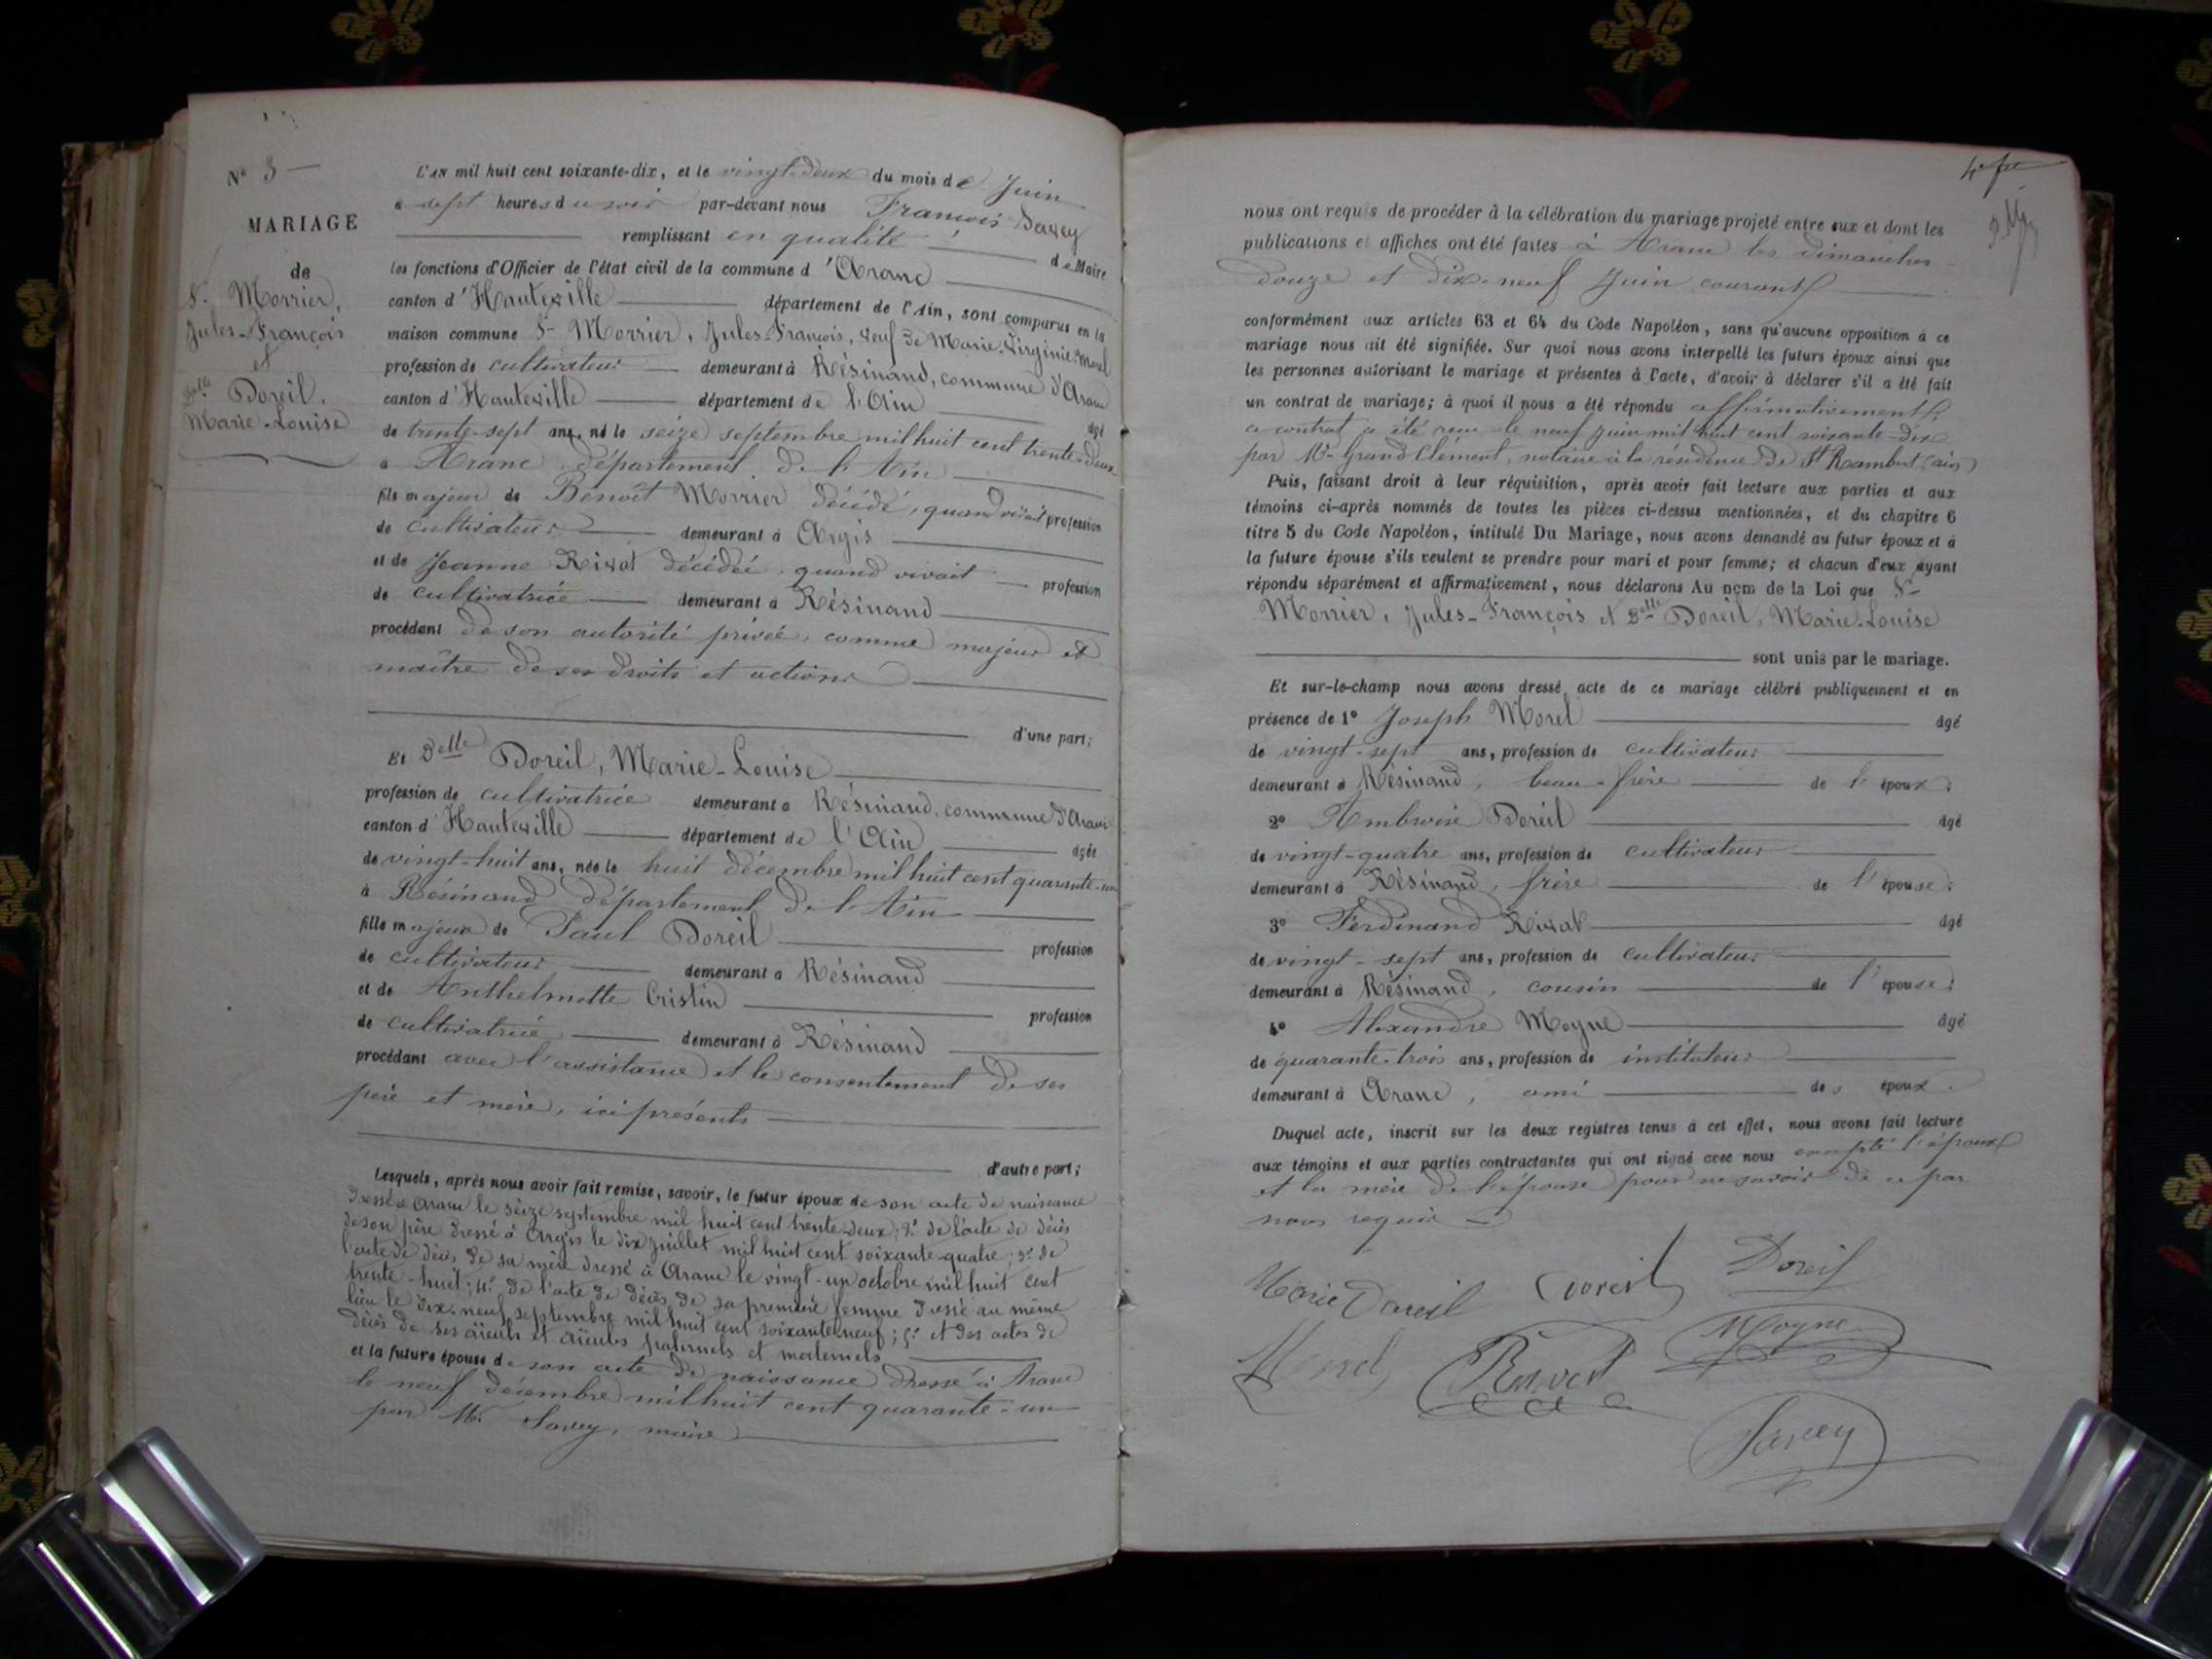 N° 3
MARIAGE
de
Sr Morrier,
Jules-François
et
Delle Doreil,
Marie-Louise
L'AN mil huit cent soixante-dix, et le vingt-deux du mois de Juin
à sept heures du soir par-devant nous François Savey
remplissant en qualité de Maire
les fonctions d'Officier de l'état civil de la commune d'Aranc
canton d'Hauteville département de l'Ain, sont comparus en la
maison commune Sr Morrier, Jules-François, veuf de Marie-Virginie Morel
profession de cultivateur demeurant à Résinand, commune d'Aranc
canton d'Hauteville département de l'Ain âgé
de trente-sept ans, né le seize septembre mil huit cent trente-deux
à Aranc département de l'Ain
fils majeur de Benoît Morrier décédé, quand vivait profession
de cultivateur demeurant à Argis
et de Jeanne Rivat décédée quand vivait profession
de cultivatrice demeurant à Résinand
procédant de son autorité privée, comme majeur et
maître de ses droits et actions
d'une part;
Et Delle Doreil, Marie-Louise
profession de cultivatrice demeurant à Résinand, commune d'Aranc
canton d'Hauteville département de l'Ain âgée
de vingt-huit ans, née le huit décembre mil huit cent quarante-un
à Résinand département de l'Ain
fille majeure de Paul Doreil profession
de cultivateur demeurant à Résinand
et de Anthelmette Cristin profession
de cultivatrice demeurant à Résinand
procédant avec l'assistance et le consentement de ses
père et mère, ici présents
d'autre part;
Lesquels, après nous avoir fait remise, savoir, le futur époux de son acte de naissance
dressé à Aranc le seize septembre mil huit cent trente-deux; 2° de l'acte de décès
de son père dressé à Argis le dix juillet mil huit cent soixante-quatre; 3° de
l'acte de décès de sa mère dressé à Aranc le vingt-un octobre mil huit cent
trente-huit; 4° de l'acte de décès de sa première femme dressé au même
lieu le dix-neuf septembre mil huit cent soixante-neuf; 5° et des actes de
décès de ses aïeuls et aïeules paternels et maternels
et la future épouse de son acte de naissance dressé à Aranc
le neuf décembre mil huit cent quarante-un
par Mr Savey, maire
nous ont requis de procéder à la célébration du mariage projeté entre eux et dont les
publications et affiches ont été faites à Aranc les dimanches
douze et dix-neuf Juin courant
conformément aux articles 63 et 64 du Code Napoléon, sans qu'aucune opposition à ce
mariage nous ait été signifiée. Sur quoi nous avons interpellé les futurs époux ainsi que
les personnes autorisant le mariage et présentes à l'acte, d'avoir à déclarer s'il a été fait
un contrat de mariage; à quoi il nous a été répondu affirmativement;
ce contrat a été reçu le neuf juin mil huit cent soixante-dix
par Me Grand Clément, notaire à la résidence de St Rambert (ain)
Puis, faisant droit à leur réquisition, après avoir fait lecture aux parties et aux
témoins ci-après nommés de toutes les pièces ci-dessus mentionnées, et du chapitre 6
titre 5 du Code Napoléon, intitulé Du Mariage, nous avons demandé au futur époux et à
la future épouse s'ils veulent se prendre pour mari et pour femme; et chacun d'eux ayant
répondu séparément et affirmativement, nous déclarons Au nom de la Loi que Sr
Morrier, Jules-François et Delle Doreil, Marie-Louise
sont unis par le mariage.
Et sur-le-champ nous avons dressé acte de ce mariage célébré publiquement et en
présence de 1° Joseph Morel âgé
de vingt-sept ans, profession de cultivateur
demeurant à Résinand, beau-frère de l'époux;
2° Ambroise Doreil âgé
de vingt-quatre ans, profession de cultivateur
demeurant à Résinand, frère de l'épouse;
3° Ferdinand Rivat âgé
de vingt-sept ans, profession de cultivateur
demeurant à Résinand, cousin de l'épouse;
4° Alexandre Moyne âgé
de quarante-trois ans, profession de instituteur
demeurant à Aranc, ami des époux.
Duquel acte, inscrit sur les deux registres tenus à cet effet, nous avons fait lecture
aux témoins et aux parties contractantes qui ont signé avec nous excepté l'époux
et la mère de l'épouse pour ne savoir de ce par
nous requis
Marie Doreil Doreil Doreil
Morel Rivat Moyne
Savey